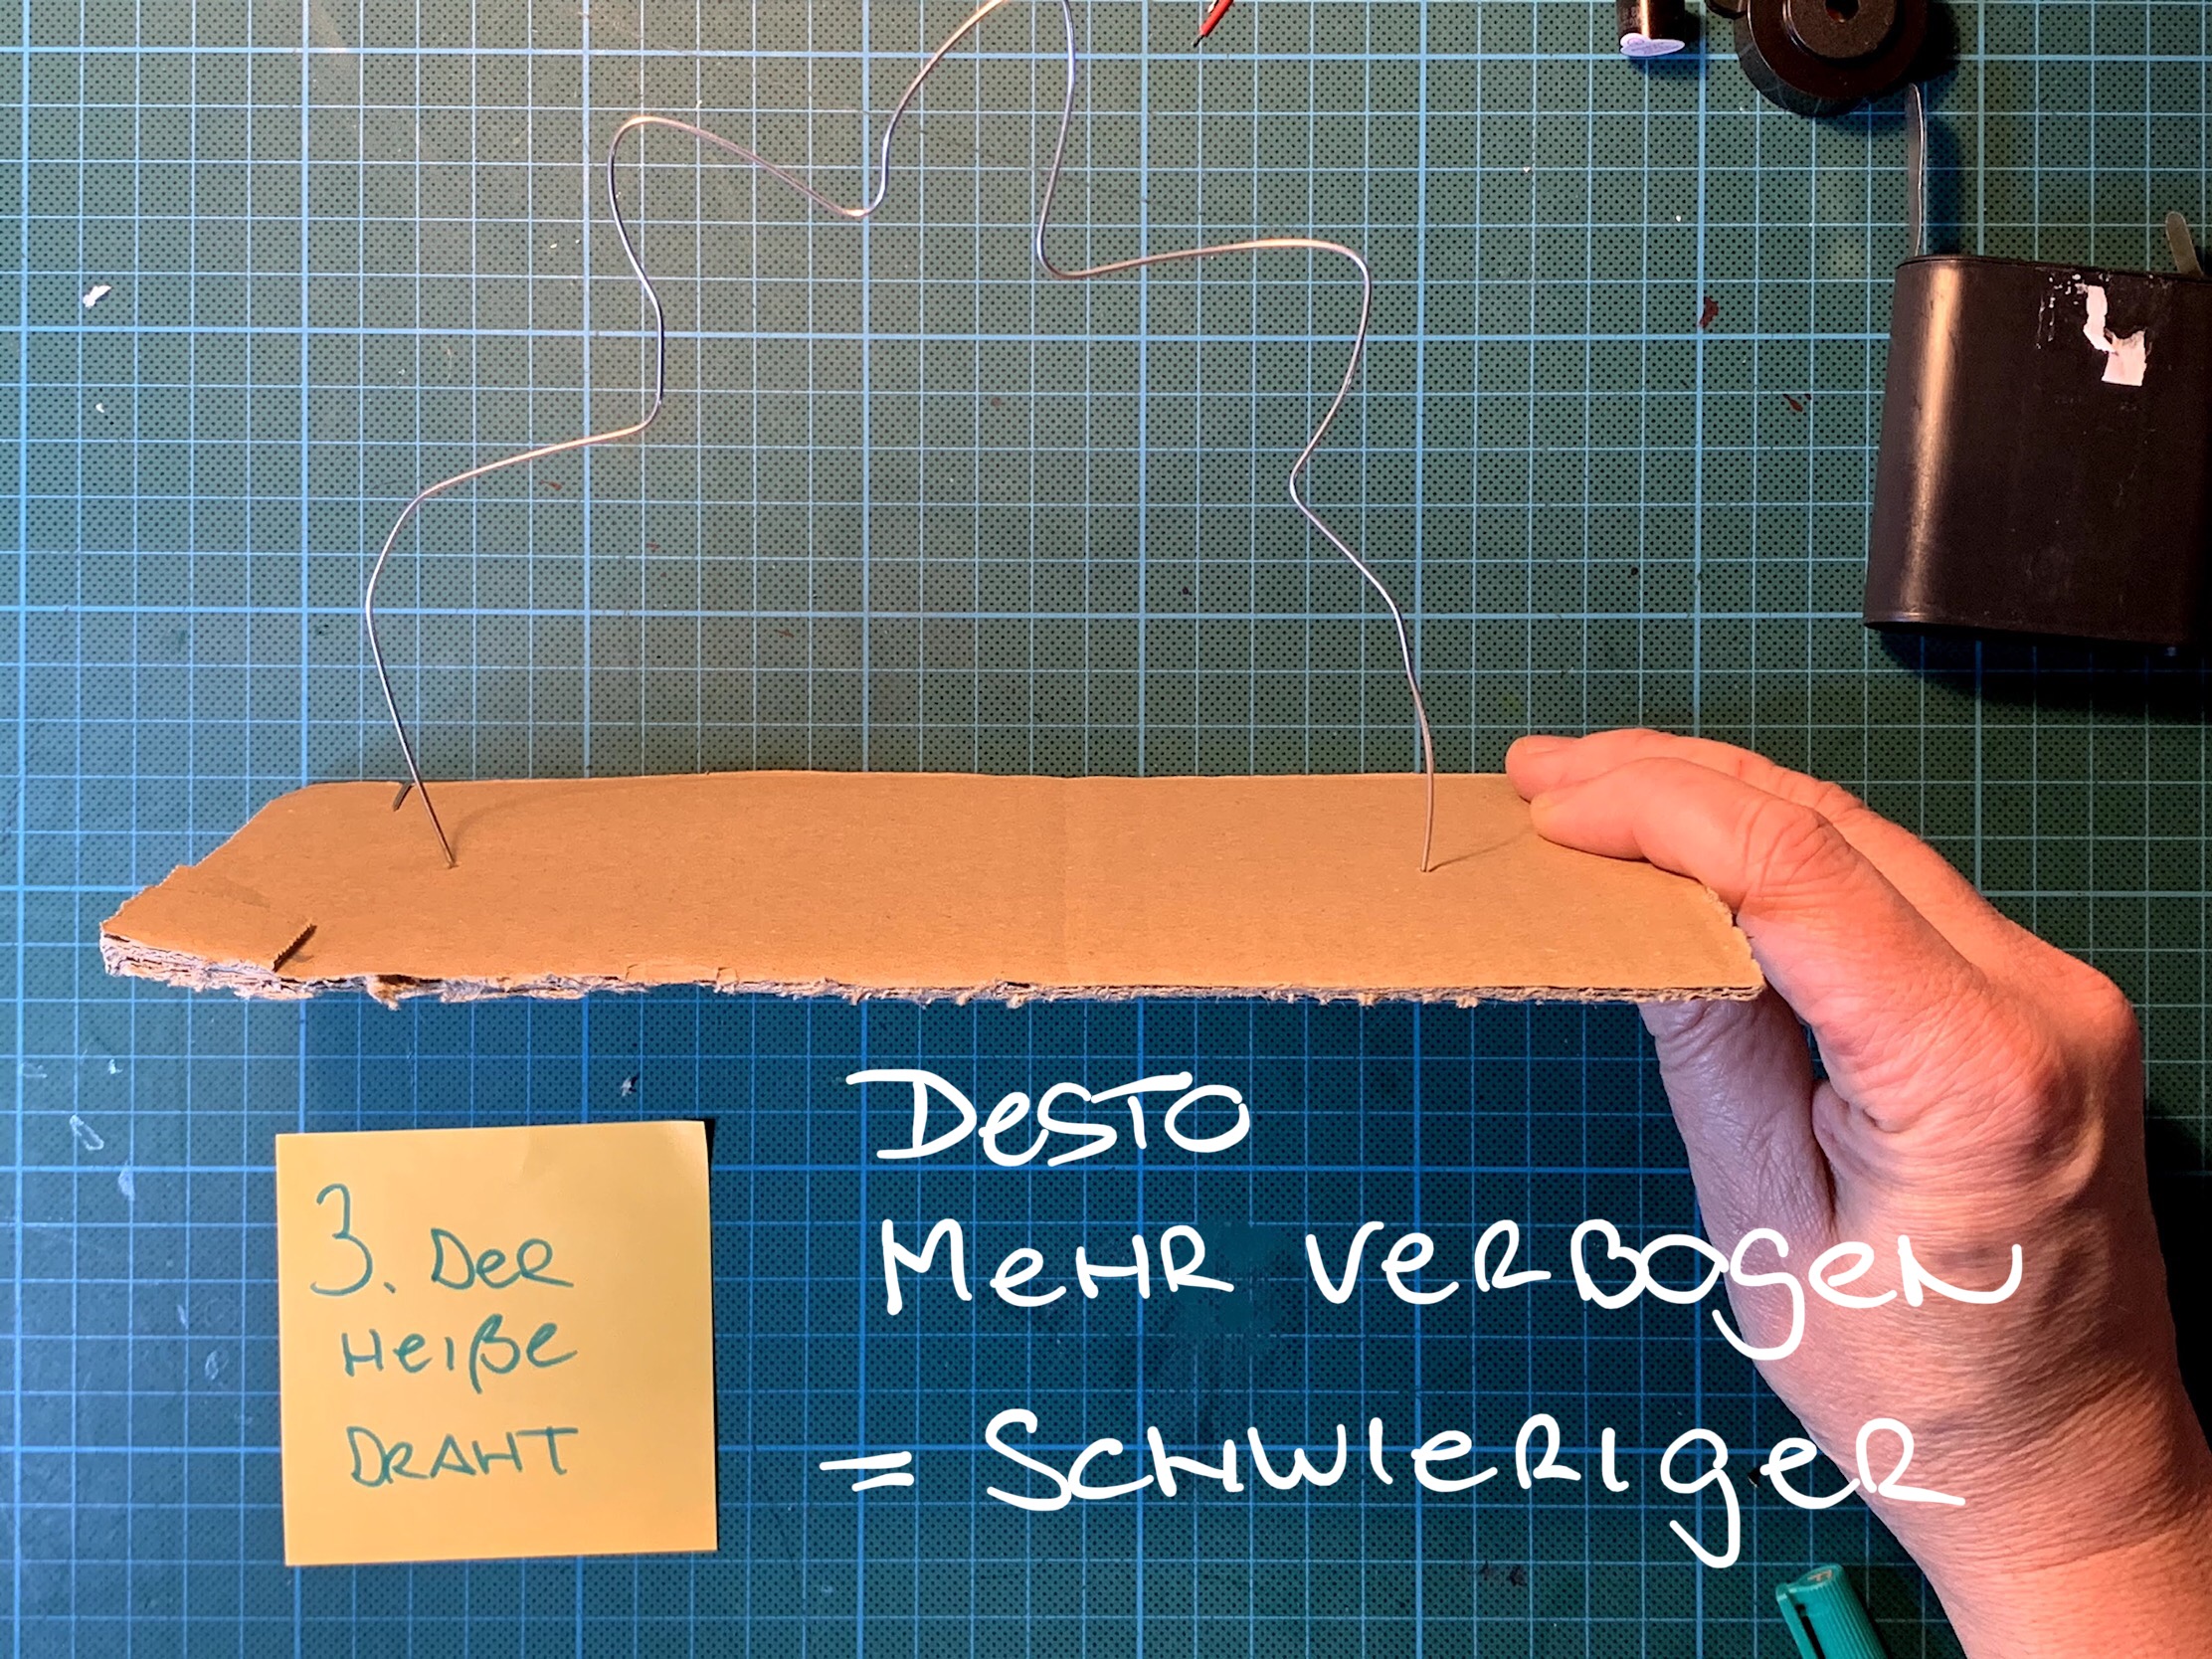 3. Der
Heiße
Draht
Desto
Mehr verbogen
= Schwieriger